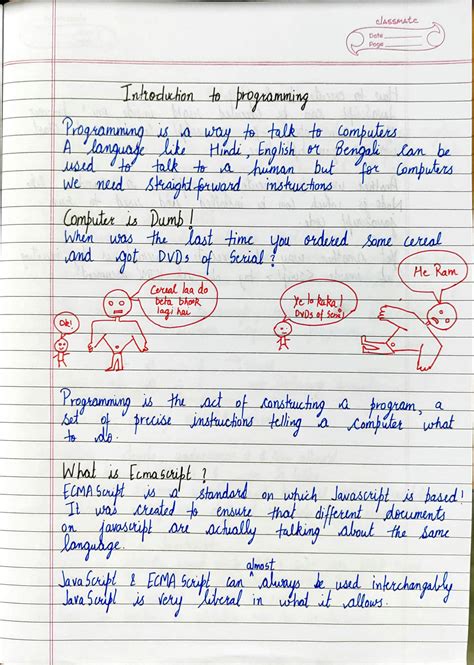 classmate
Date
Page
Introduction to programming
Programming is a way to talk to computers
A language like Hindi, English or Bengali can be
used to talk to a human but for computers
We need straightforward instructions
Computer is Dumb!
When was the last time you ordered some cereal
and got DVDs of Serial?
Ok!
Cereal laa do
beta bhook
lagi hai
Ye lo kaka!
DVDs of Serial
He Ram
Programming is the act of constructing a program, a
set of precise instructions telling a computer what
to do.
What is Ecmascript?
ECMAScript is a standard on which Javascript is based!
It was created to ensure that different documents
on javascript are actually talking about the same
language.
JavaScript & ECMAScript can almost always be used interchangably
JavaScript is very liberal in what it allows.